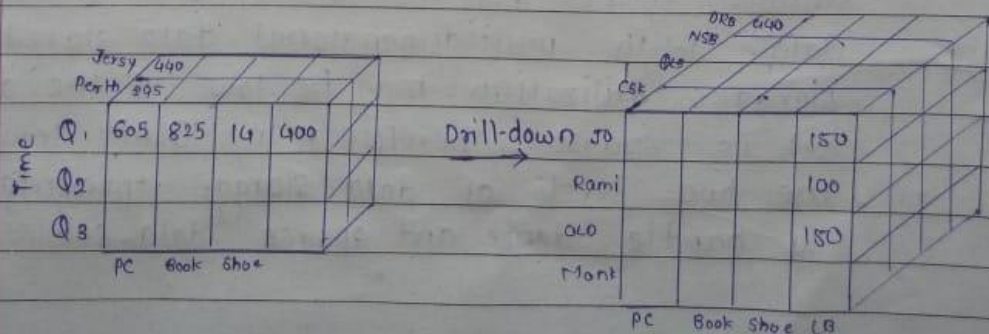 Jersy 440
Perth 395
Time
Q1 605 825 14 400
Q2
Q3
PC Book Shoe
Drill-down
ORB 440
NSB
CSK
JO 150
Rami 100
OLO 150
Mont
PC Book Shoe LB